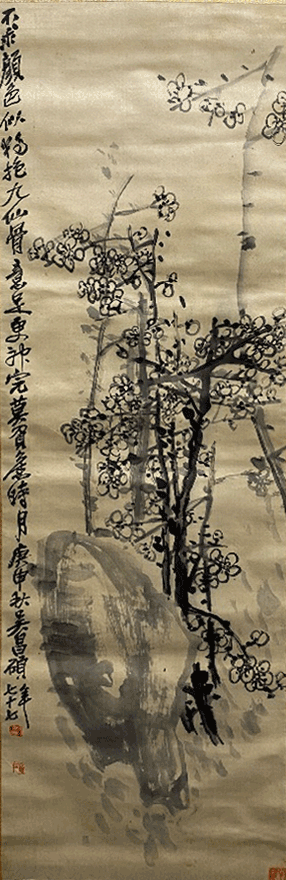 不求顏色似 孤抱九仙骨 意足更神完 莫負蒼時月 庚申秋 吳昌碩 年七十七